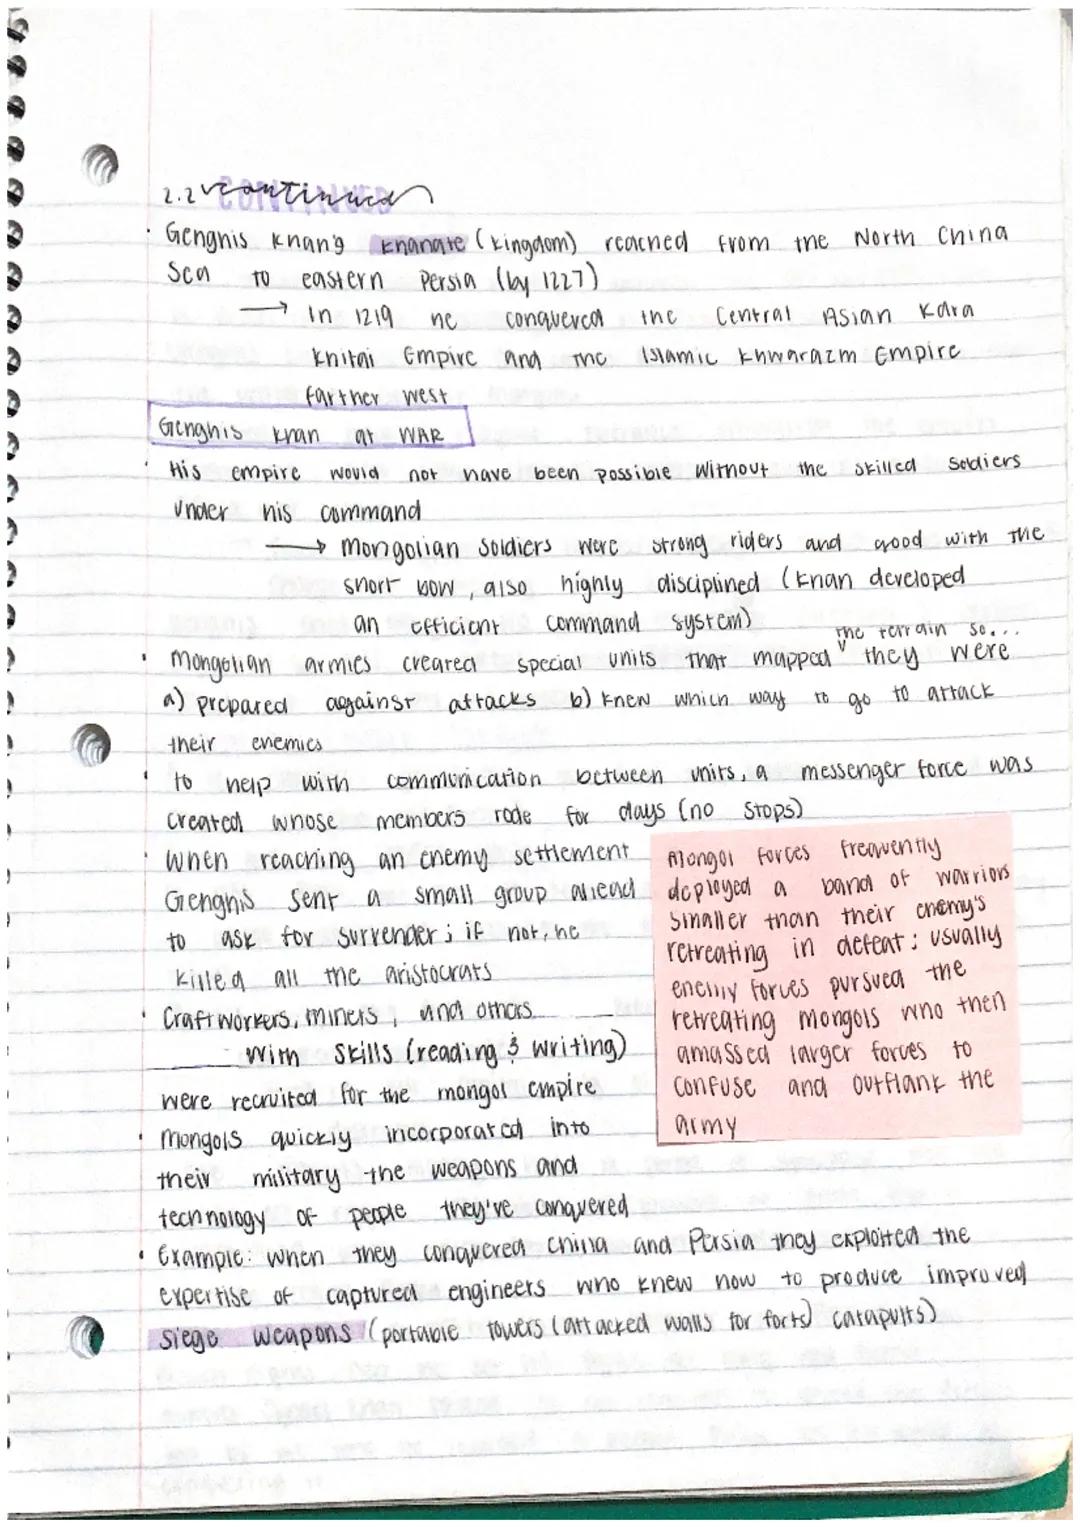 2.2 continued
CONTINUED
· Genghis Khan's Khanate (Kingdom) reached from the North China
Sea to eastern Persia (by 1227)
→ In 1219 he conquered the Central Asian Kara
Khitai Empire and the Islamic Khwarazm Empire
farther west
Genghis Khan at WAR
· His empire would not have been possible without the skilled soldiers
under his command
→ Mongolian soldiers were strong riders and good with the
short bow, also highly disciplined (Khan developed
an efficient command system)
the terrain so...
· Mongolian armies created special units that mapped ∨ they were
a) prepared against attacks b) knew which way to go to attack
their enemies
· to help with communication between units, a messenger force was
created whose members rode for days (no stops)
· When reaching an enemy settlement
Genghis sent a small group ahead
to ask for surrender; if not, he
killed all the aristocrats
· Craftworkers, miners, and others
with skills (reading & writing)
were recruited for the mongol empire
· Mongols quickly incorporated into
their military the weapons and
technology of people they've conquered
· Example: when they conquered China and Persia they exploited the
expertise of captured engineers who knew how to produce improved
siege weapons (portable towers (attacked walls for forts) catapults)
Mongol forces frequently
deployed a band of warriors
smaller than their enemy's
retreating in defeat; usually
enemy forces pursued the
retreating mongols who then
amassed larger forces to
confuse and outflank the
army